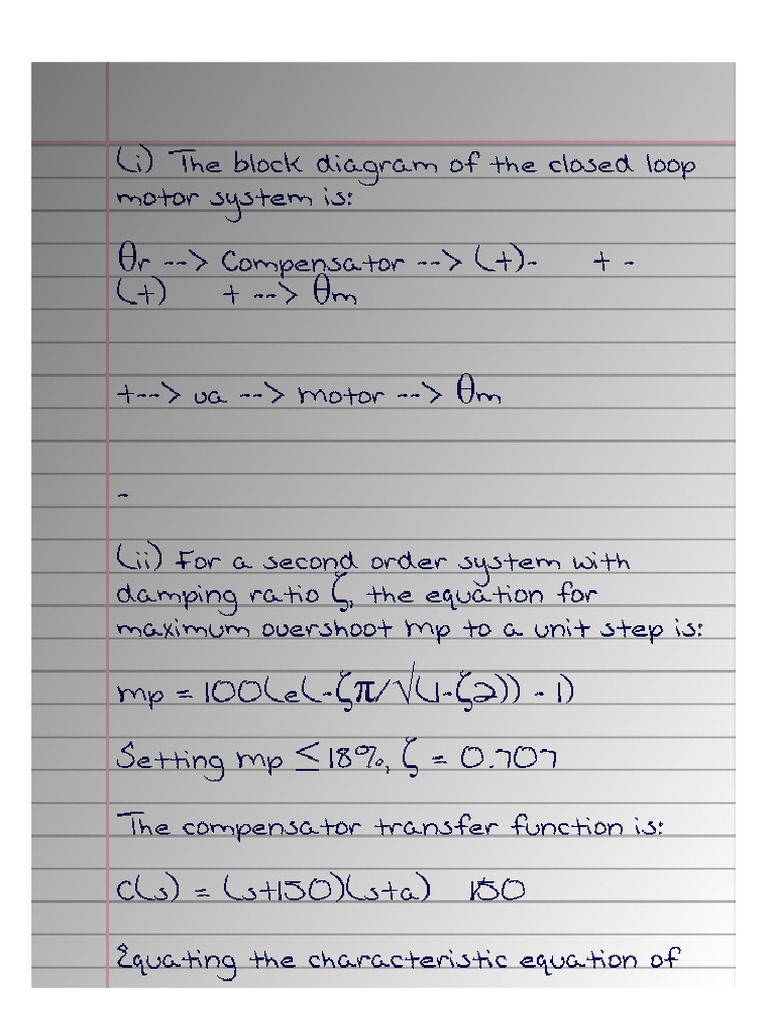 (i) The block diagram of the closed loop
motor system is:
θr --> Compensator --> (+)- + -
(+) + --> θm
+--> va --> motor --> θm
-
(ii) For a second order system with
damping ratio ζ, the equation for
maximum overshoot mp to a unit step is:
mp = 100(e(-ζπ/√(1-ζ2)) - 1)
Setting mp ≤ 18%, ζ = 0.707
The compensator transfer function is:
C(s) = (s+150)(s+a) 150
Equating the characteristic equation of